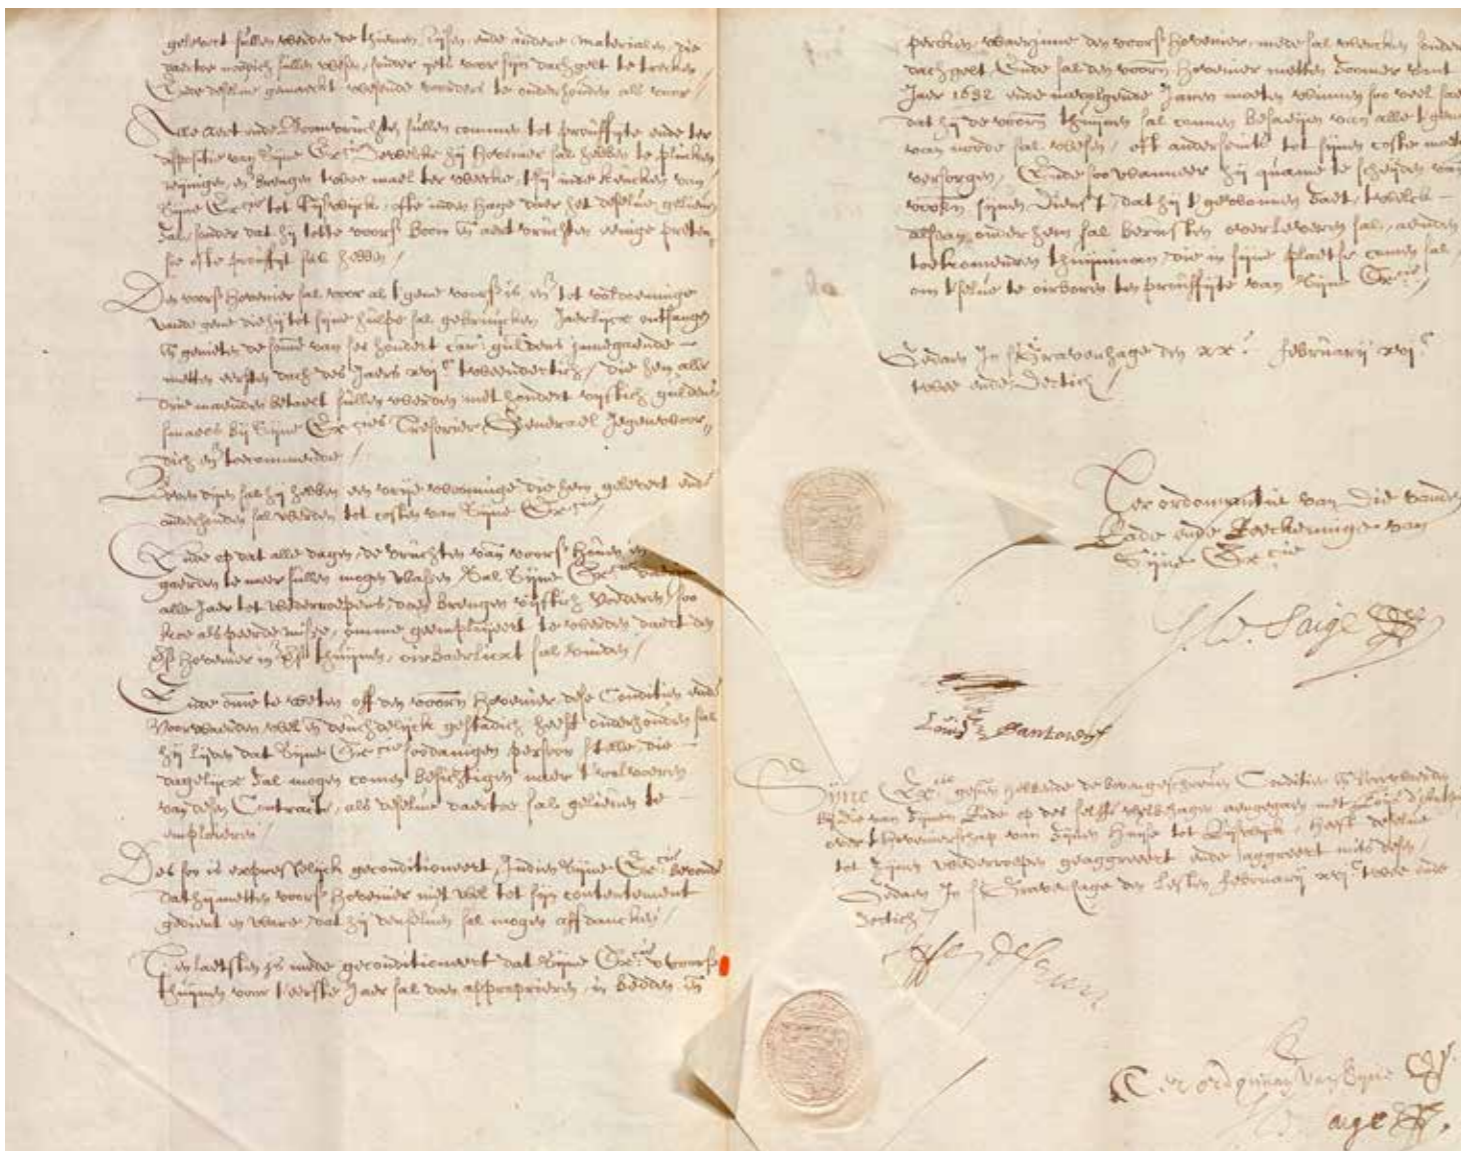 gelevert sullen werden de thienen, rijsen, ende andere materialen, die
daertoe nodich sullen wesen, sonder yets voor sijn dachgelt te trecken
Ende deselve gemaeckt wesende voorders te onderhouden als voor
Alle aert ende Boomvruchten sullen commen tot prouffijte ende ter
dispositie van Sijne Exc.ie Dewelcke hij Hovenier sal hebben te plucken
reijnigen, en brengen twee mael ter weecke, 'tsij inde keucken van
Sijne Exc.ie tot Rijswijck, ofte inden Hage daer het deselve gelieven
sal, sonder dat hij totte voors. Boom en aert vruchten eenige preten
sie ofte prouffijt sal hebben /
Den voors. Hovenier sal voor al 't gene voors. is, en tot voldoeninge
vande gene die hij tot sijne hulpe sal gebruijcken Jaerlijcx ontfangen
en genieten de somme van ses hondert car. guldens innegaende
metten eersten dach des Jaers xvi.c tweendertich, die hem alle
drie maenden betaelt sullen werden met hondert vijftich guldens
smaels bij Sijne Exc.ies Tresorier Generael Jegenwoor
dich en toecommende /
Boven dijen sal hij hebben een vrije wooninge die hem gelevert ende
onderhouden sal werden tot costen van Sijne Exc.ie
Ende op dat alle dagen, de vruchten van voors. Hoven en
gaerden te meer sullen mogen wassen, Sal Sijne Exc.ie
alle Jaer tot wederroepens, doen brengen vijftich voederen, soo
koe als peerde misse, omme geemploijeert te werden daert den
Hovenier in thuijnen, oirbaerlicxt sal vinden /
Ende omme te weten off den voorn. Hovenier dese Conditien ende
Voorwaerden wel en deuchdelijck gestadich heeft onderhouden sal
hij lijden dat Sijne Exc.ie soodanigen persoon stelle die
dagelijcx sal mogen comen besichtigen naer 't volvoeren
van desen Contracte, als deselve daertoe sal gelieven te
emploieren /
Des soo is expresselijck geconditionneert, Indien Sijne Exc.ie bevonde
dat hij metten voors. Hovenier niet wel tot sijn contentement
gedient en ware, dat hij denselven sal mogen aff dancken /
Ten laetsten is mede geconditionneert dat Sijne Exc.ie voors.
thuijnen voor 't eerste Jaer sal doen approprieren, in bedden en
percken, waerinne den voors. Hovenier, mede sal wercken sonder
dachgelt Ende sal den voorn. Hovenier metten Somer vant
Jaer 1632 ende naevolgende Jaeren moeten winnen soo veel
dat hij de voorn. thuijnen sal connen besaeijen van alle 't gene
van noode sal wesen, oft andersints tot sijnen coste moeten
versorgen, Ende soo wanneer hij quame te scheijden van
voorn. sijnen dienst, dat hij 't gewonnen saet, twelck
alsdan, onder hem sal berusten overleveren sal, aenden
toekomenden thuijnman, die in sijne plaetse comen sal,
om tselve te oirboren ten prouffijte van Sijne Exc.ie
Gedaen In s'Gravenhage den xx.e februarij xvi.c
twee ende dertich /
Ter ordonnantie van Die vanden
Rade ende Reeckeninge van
Sijne Exc.ie
Louijs
Sijne Exc.ie gesien hebbende de bovengeschreven Conditien en Voorwaerden
bij die van Sijnen Rade op des selffs aengegaen met
over 't Hovenierschap van Sijnen Huijse tot Rijswijck, Heeft deselve
tot Sijnen wederroepen geaggreeert ende aggreert mits desen,
Gedaen In s'Gravenhage den lesten februarij xvi.c twee ende
dertich /
Ter ordonnan. Van Sijne Ex